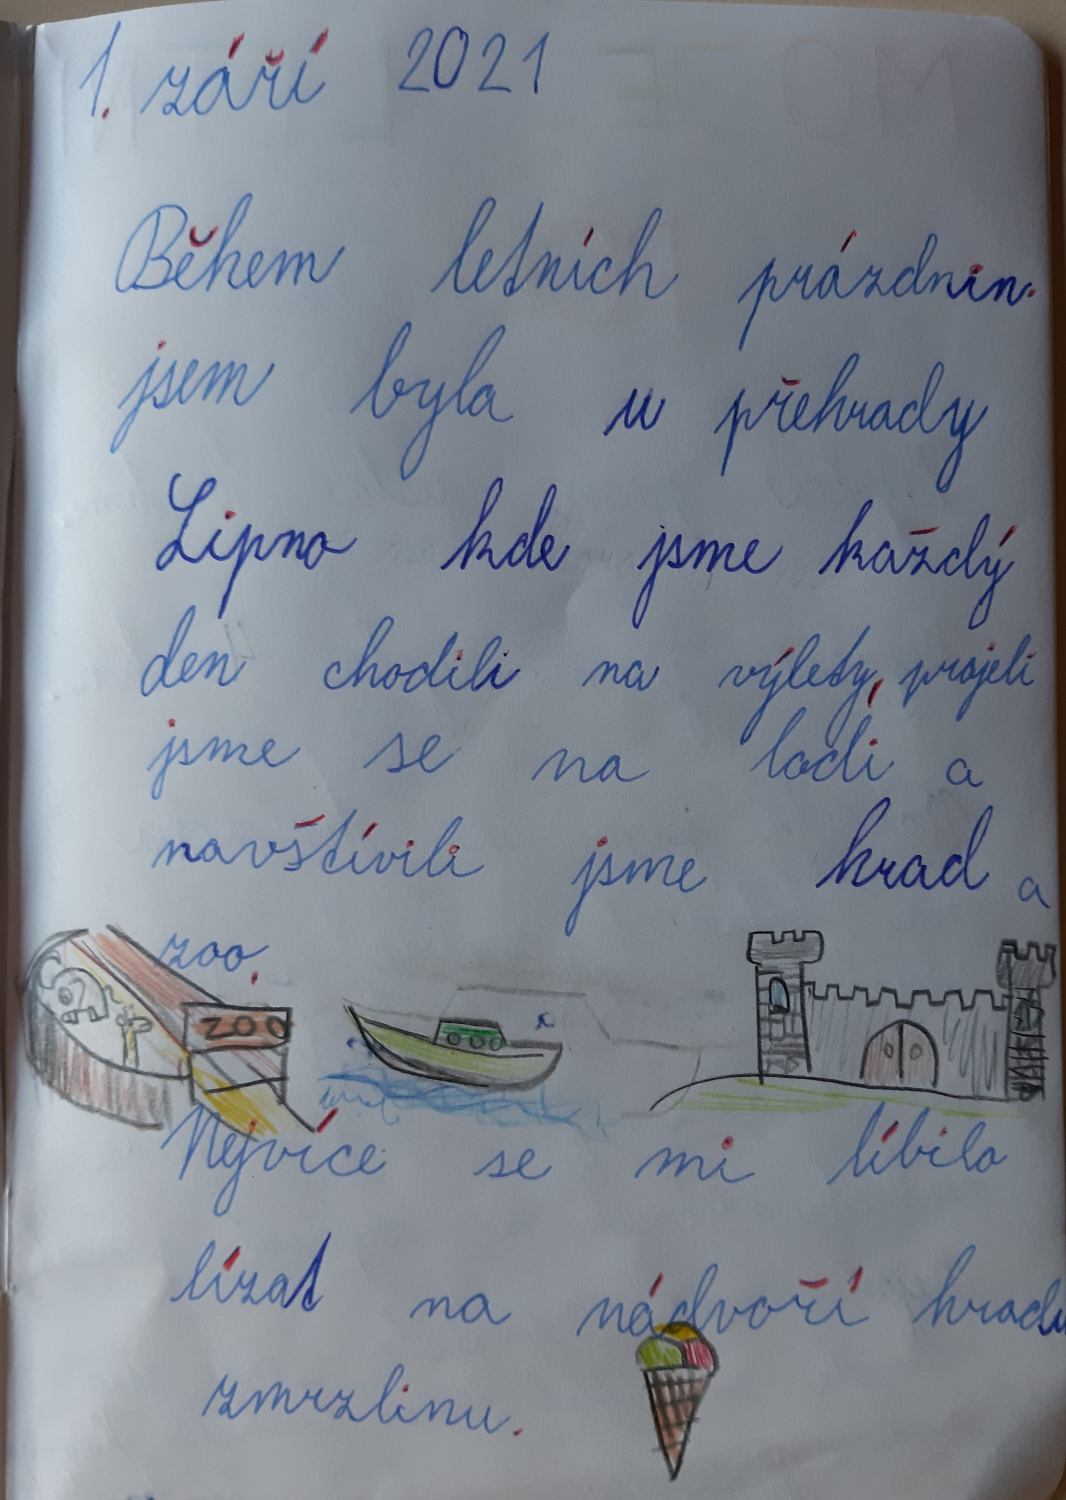 1. září 2021
Během letních prázdnin
jsem byla u přehrady
Lipno kde jsme každý
den chodili na výlety, projeli
jsme se na lodi a
navštívili jsme hrad a
zoo.
ZOO
Nejvíce se mi líbilo
lízat na nádvoří hradu
zmrzlinu.